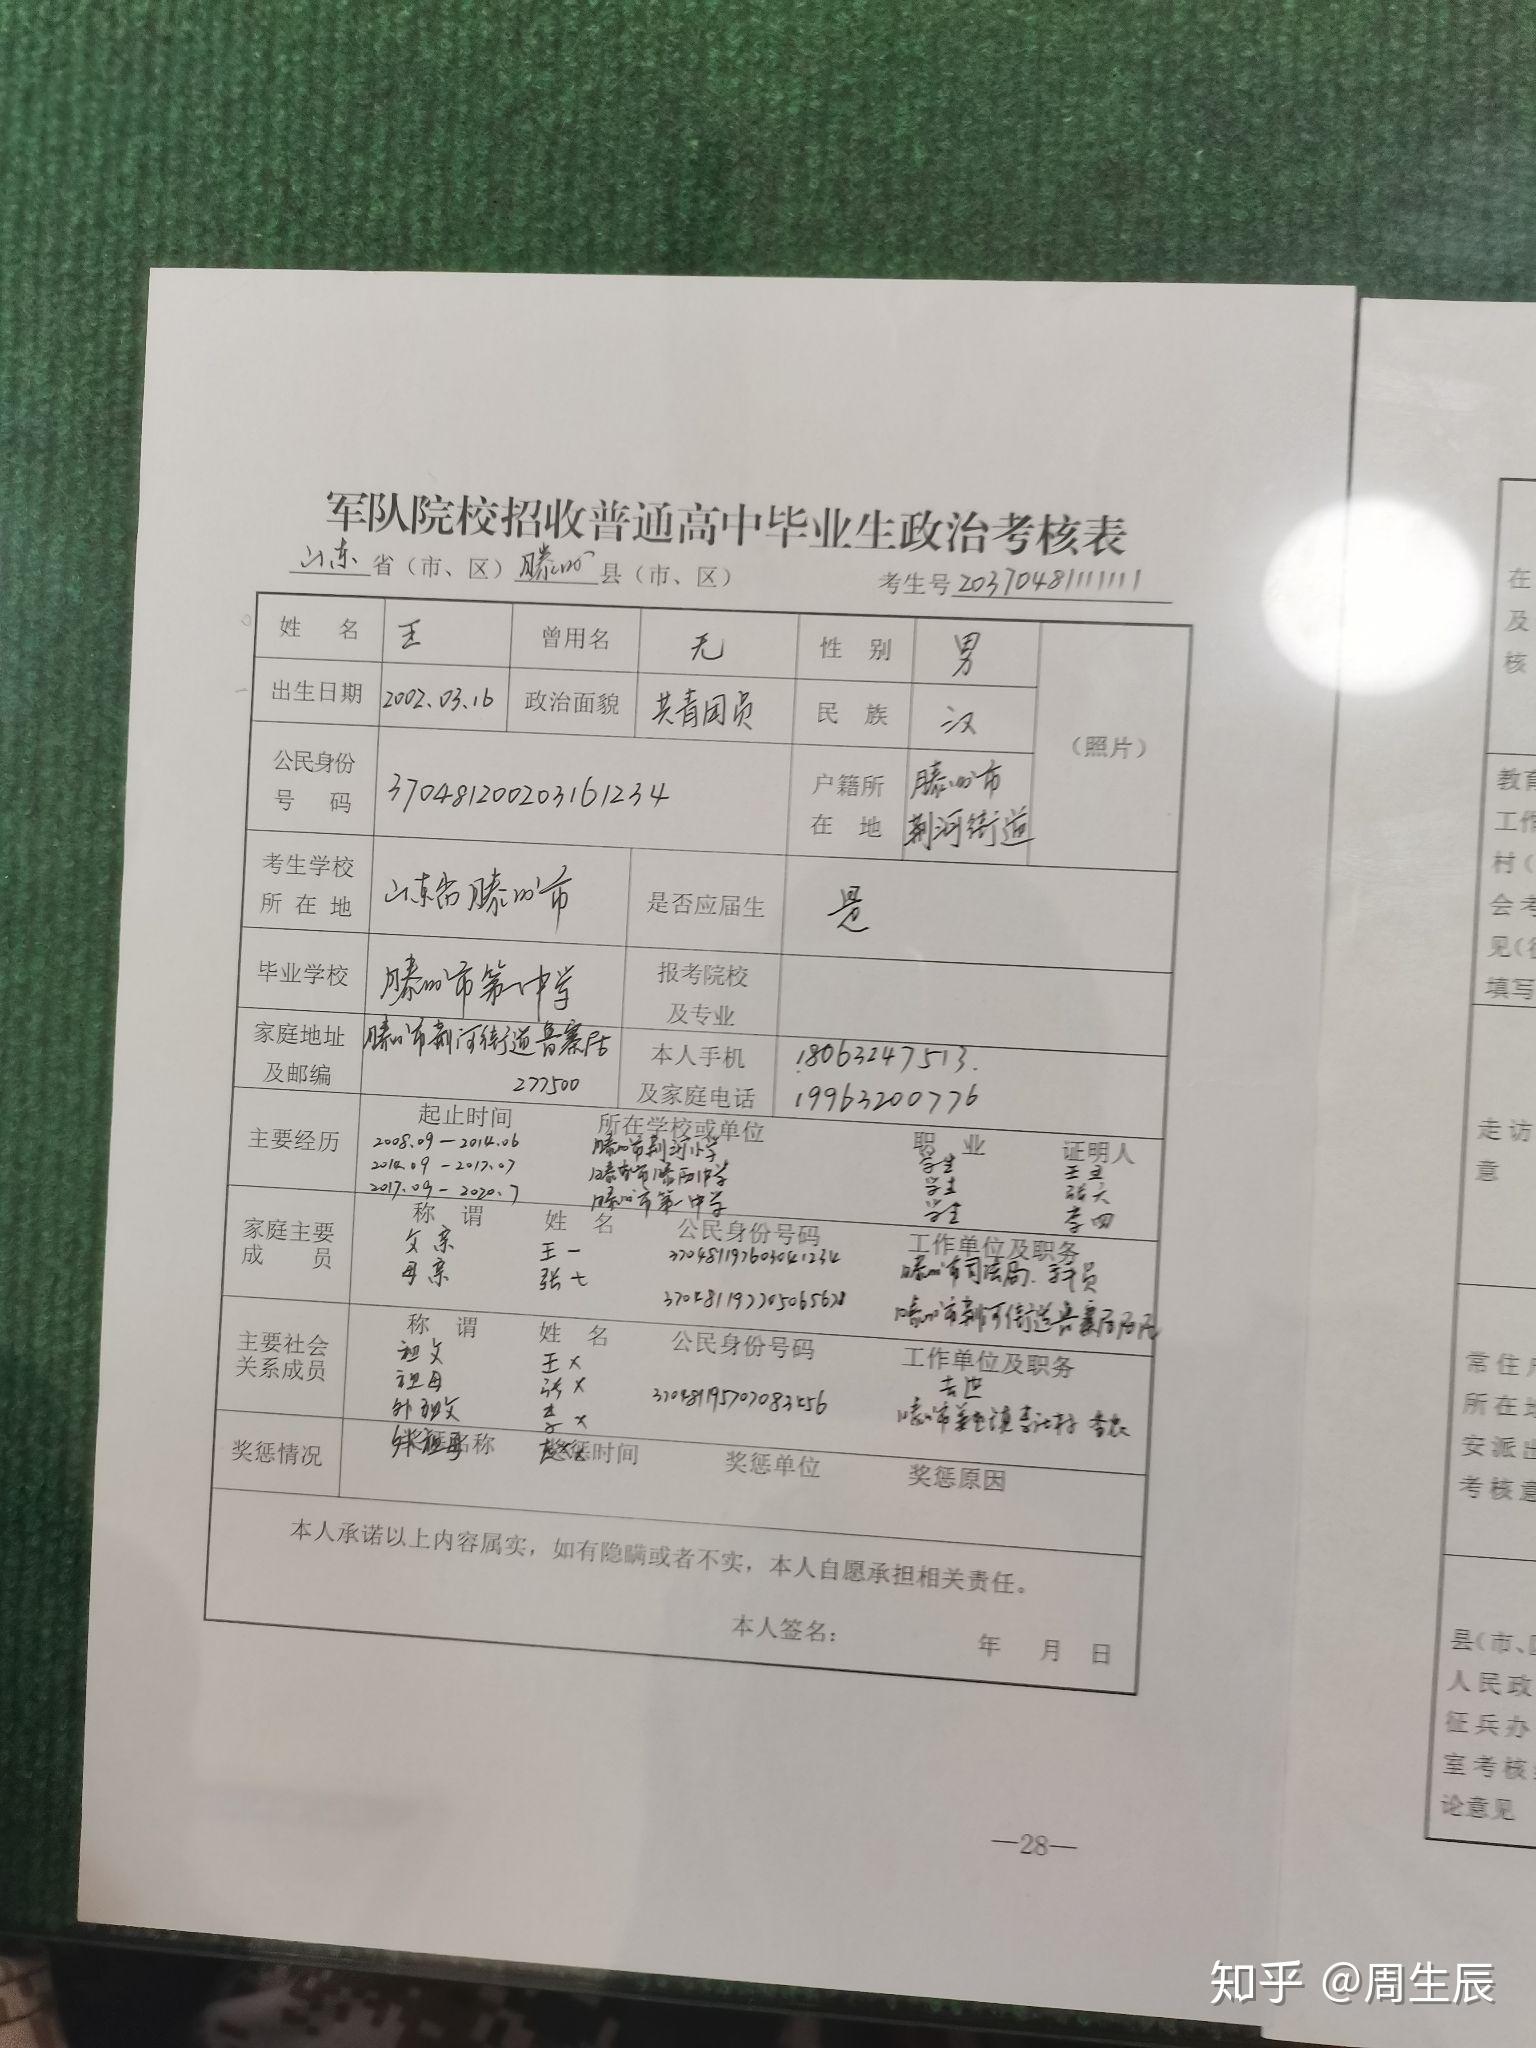 军队院校招收普通高中毕业生政治考核表
山东省（市、区）滕州县（市、区） 考生号 20370481111111
姓 名 王 曾用名 无 性 别 男
出生日期 2002.03.16 政治面貌 共青团员 民 族 汉
（照片）
公民身份号 码 370481200203161234 户籍所在 地 滕州市荆河街道
考生学校所 在 地 山东省滕州市 是否应届生 是
毕业学校 滕州市第一中学 报考院校及专业
家庭地址及邮编 滕州市荆河街道鲁寨居 277500 本人手机及家庭电话 18063247513. 19963200776
主要经历 起止时间 所在学校或单位 职 业 证明人
2008.09-2014.06 滕州市荆河小学 学生 王五
2014.09-2017.07 滕州市滕西中学 学生 张六
2017.09-2020.7 滕州市第一中学 学生 李四
家庭主要成 员 称 谓 姓 名 公民身份号码 工作单位及职务
父亲 王一 370481197603041234 滕州市司法局.科员
母亲 张七 370481197705065678 滕州市荆河街道鲁寨居居民
主要社会关系成员 称 谓 姓 名 公民身份号码 工作单位及职务
祖父 王X 去世
祖母 张X 370481195707083456
外祖父 李X
外祖母
奖惩情况 奖惩名称 奖惩时间 奖惩单位 奖惩原因
本人承诺以上内容属实，如有隐瞒或者不实，本人自愿承担相关责任。
本人签名： 年 月 日
—28—
在
及
核
教育
工作
村（
会考
见（
填写
走访
意
常住户
所在地
安派出
考核意
县（市、区
人民政
征兵办
室考核
论意见
知乎 @周生辰